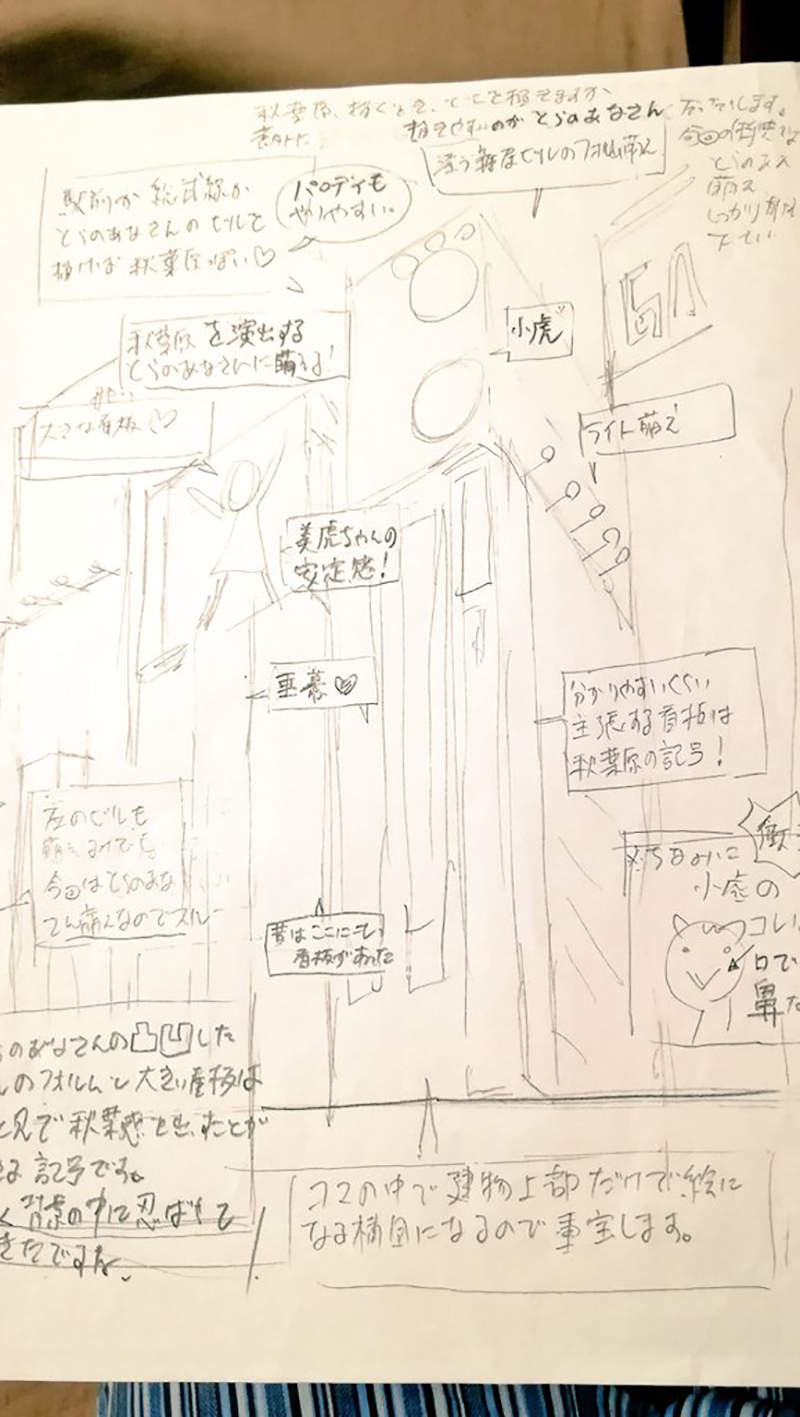 秋葉原、描くとき、どこを描きますか
意外に
描きやすいのが とらのあなさん
漂う雑居ビルのフォルム萌え
します。
今回の
とらのあな
萌え
しっかり
下さい
駅前か 総武線か
とらのあなさんのビルを
描けば 秋葉原っぽい♡
パロディも
やりやすい。
秋葉原を演出する
とらのあなさんに萌える!
大きな看板♡
小虎
ライト萌え
美虎ちゃんの
安定感!
垂幕♡
分かりやすいくらい
主張する看板は
秋葉原の記号!
左のビルも
今回はとらのあな
さん萌えなのでスルー
昔はここにこい
看板があった
ちなみに
小虎の
コレは
口で
鼻
のあなさんの凸凹した
のフォルムと大きい看板は
と見で秋葉感を出すことが
記号です。
く背景の中に忍ばせて
きたですね
コマの中で建物上部だけで絵に
なる構図になるので重宝します。